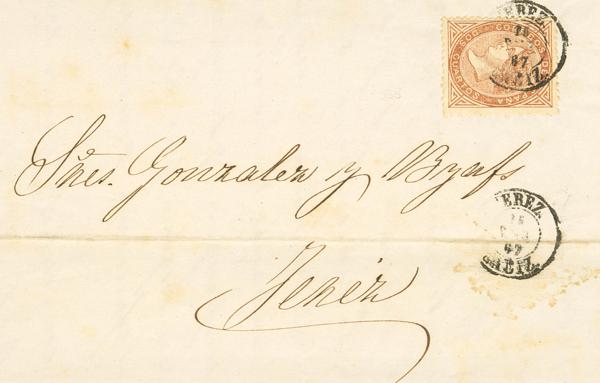 JEREZ
67
CADIZ
CORREOS DE ESPAÑA
DOS CUARTOS
Sres. Gonzalez y Byafs
JEREZ
67
CADIZ
Jerez